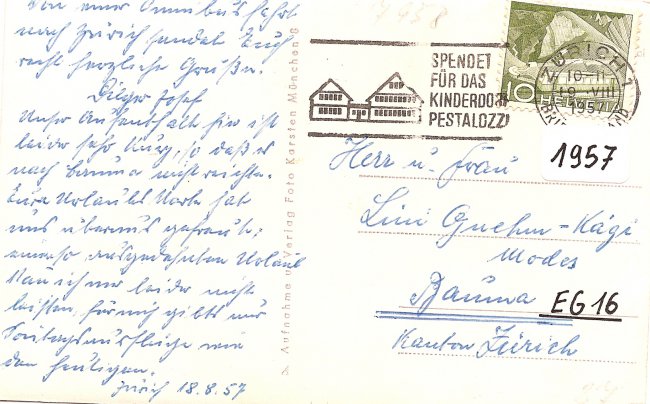 Von einer Omnibusfahrt
nach Zürich sendet Euch
recht herzliche Grüße.
Dilger Josef
Unser Aufenthalt hier ist
leider sehr kurz, so daß es
nach Bauma nicht reichte.
Eure Urlaubs Karte hat
uns überaus gefreut;
einen so ausgedehnten Urlaub
kann ich mir leider nicht
leisten, für mich gibts nur
Sonntagsausflüge wie
den heutigen.
Zürich 18.8.57
Aufnahme u. Verlag Foto Karsten München 9
SPENDET
FÜR DAS
KINDERDORF
PESTALOZZI
10
ZÜRICH 1
10-11
VIII
1957
1957
Herr u. Frau
Lini Gnehm-Kägi
Modes
Bauma
EG 16
Kanton Zürich